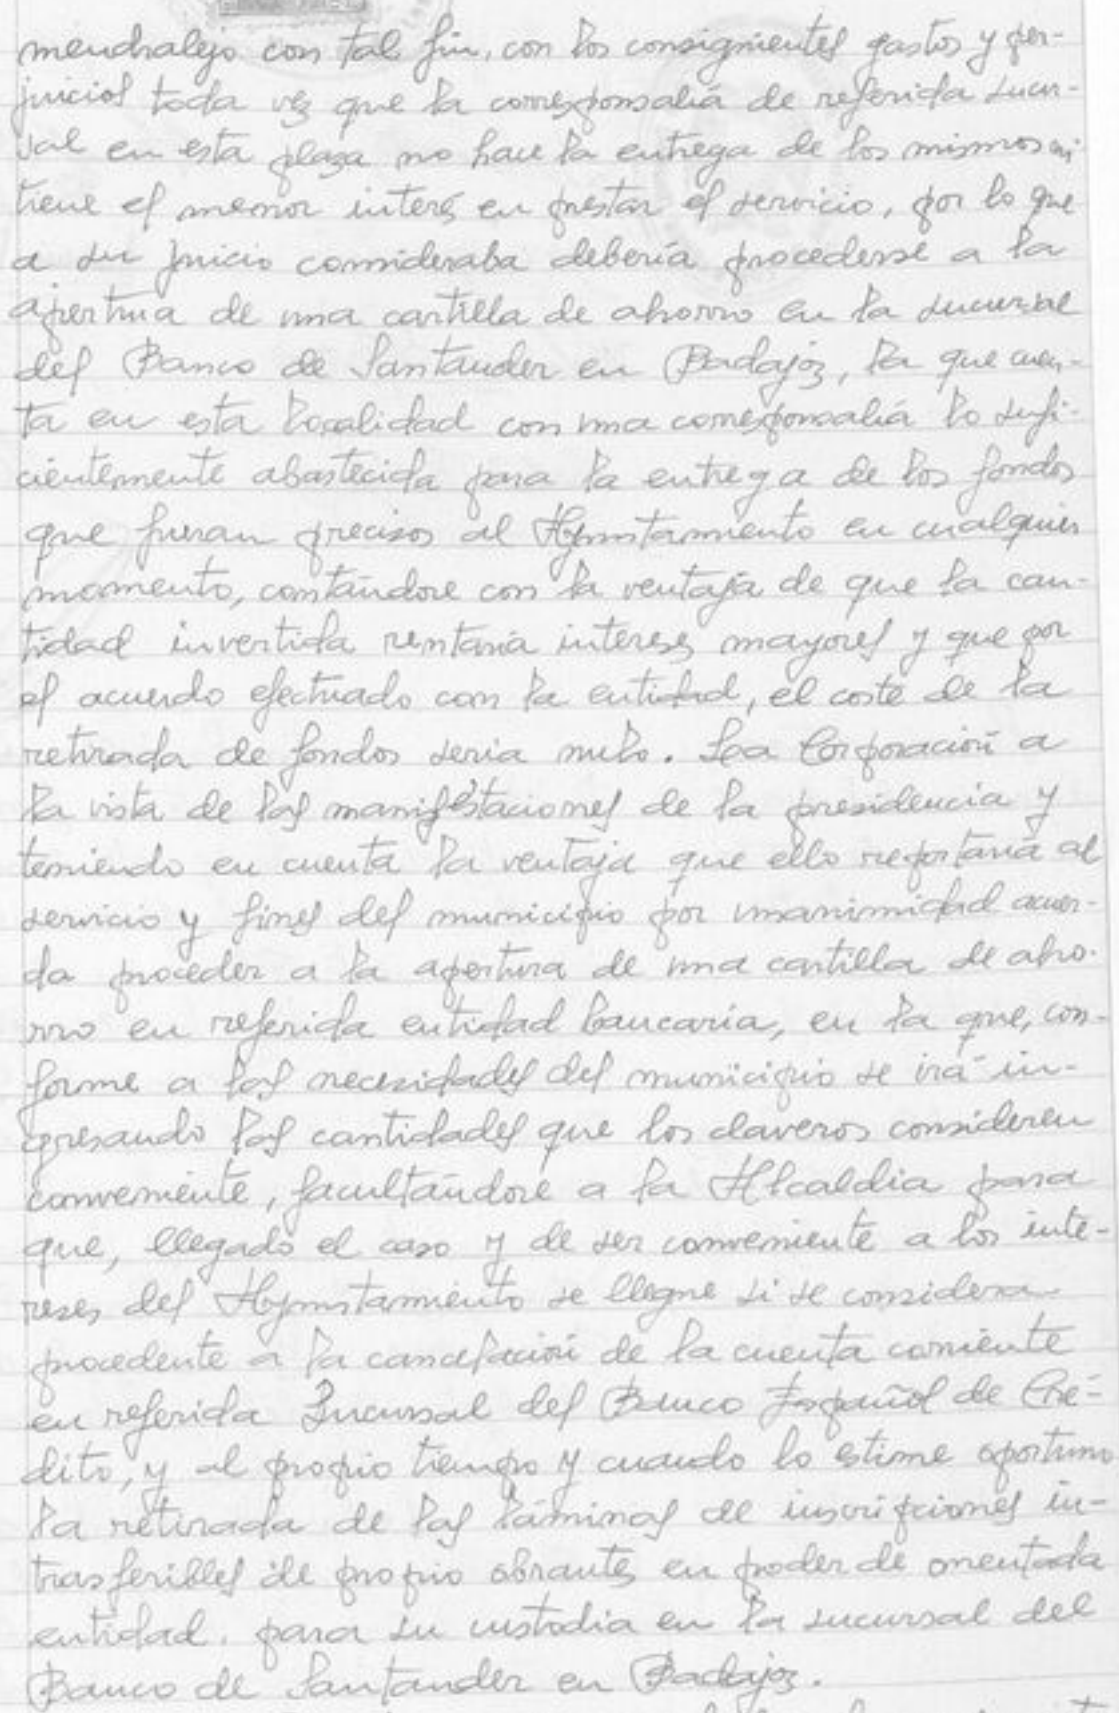 mendralejo con tal fin, con los consiguientes gastos y per-
juicios toda vez que la corresponsalía de referida sucur-
sal en esta plaza no hace la entrega de los mismos ni
tiene el menor interés en prestar el servicio, por lo que
a su juicio consideraba debería procederse a la
apertura de una cartilla de ahorro en la sucursal
del Banco de Santander en Badajoz, la que cuen-
ta en esta localidad con una corresponsalía lo sufi-
cientemente abastecida para la entrega de los fondos
que fueran precisos al Ayuntamiento en cualquier
momento, contándose con la ventaja de que la can-
tidad invertida rentaría intereses mayores y que por
el acuerdo efectuado con la entidad, el coste de la
retirada de fondos sería nulo. La Corporación a
la vista de las manifestaciones de la presidencia y
teniendo en cuenta la ventaja que ello reportaría al
servicio y fines del municipio por unanimidad acuer-
da proceder a la apertura de una cartilla de aho-
rro en referida entidad bancaria, en la que, con-
forme a las necesidades del municipio se irá in-
gresando las cantidades que los claveros consideren
conveniente, facultándose a la Alcaldia para
que, llegado el caso y de ser conveniente a los inte-
reses del Ayuntamiento se llegue si se considera
procedente a la cancelación de la cuenta corriente
en referida Sucursal del Banco Español de Cré-
dito, y al propio tiempo y cuando lo estime oportuno
la retirada de las láminas de inscripciones in-
trasferibles de propio obrantes en poder de mentada
entidad. para su custodia en la sucursal del
Banco de Santander en Badajoz.